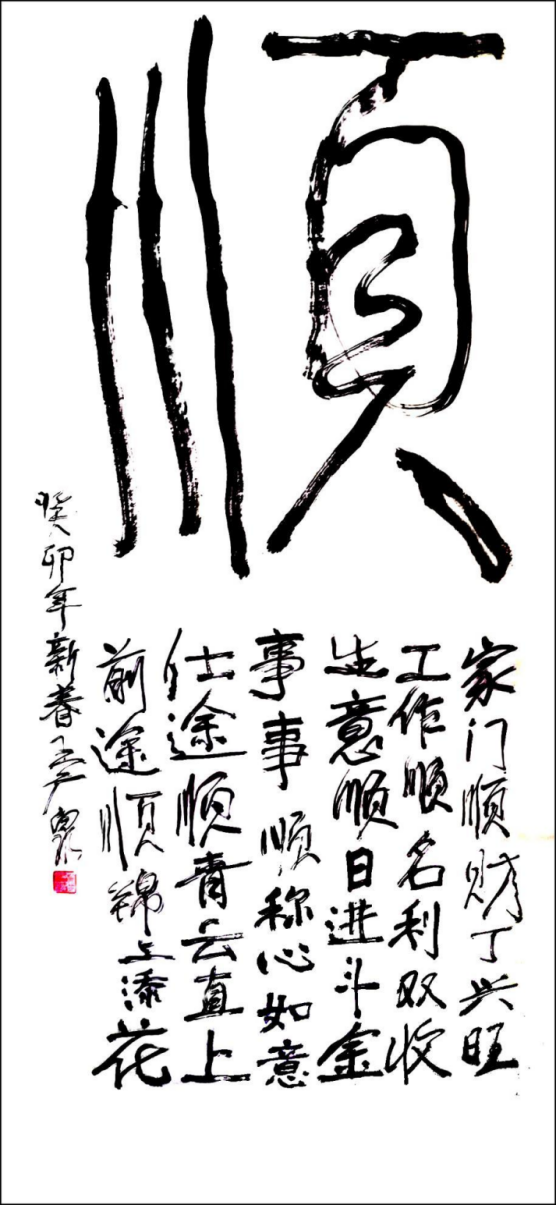 順
家门顺财丁兴旺
工作顺名利双收
生意顺日进斗金
事事顺称心如意
仕途顺青云直上
前途顺锦上添花
癸卯年新春